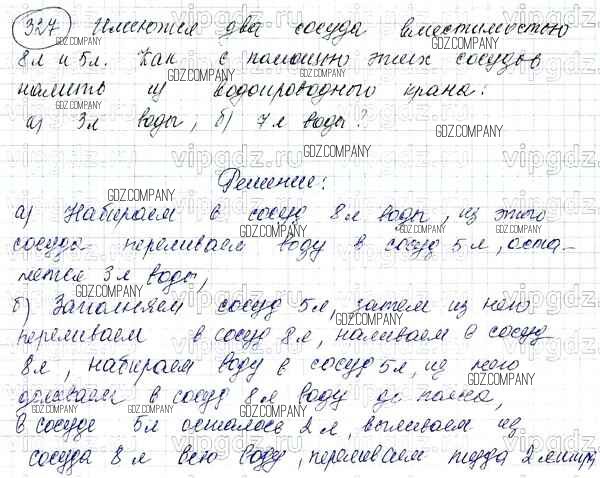 327 Имеются два сосуда вместимостью
8л и 5л. Как с помощью этих сосудов
налить из водопроводного крана:
а) 3л воды, б) 7л воды?
Решение:
а) Набираем в сосуд 8л воды, из этого
сосуда переливаем воду в сосуд 5л, оста-
нется 3л воды,
б) Заполняем сосуд 5л, затем из него
переливаем в сосуд 8л, наливаем в сосуд
8л, набираем воду в сосуд 5л, из него
доливаем в сосуд 8л воду до полна,
в сосуде 5л осталось 2л, выливаем из
сосуда 8л всю воду, переливаем туда 2 литра